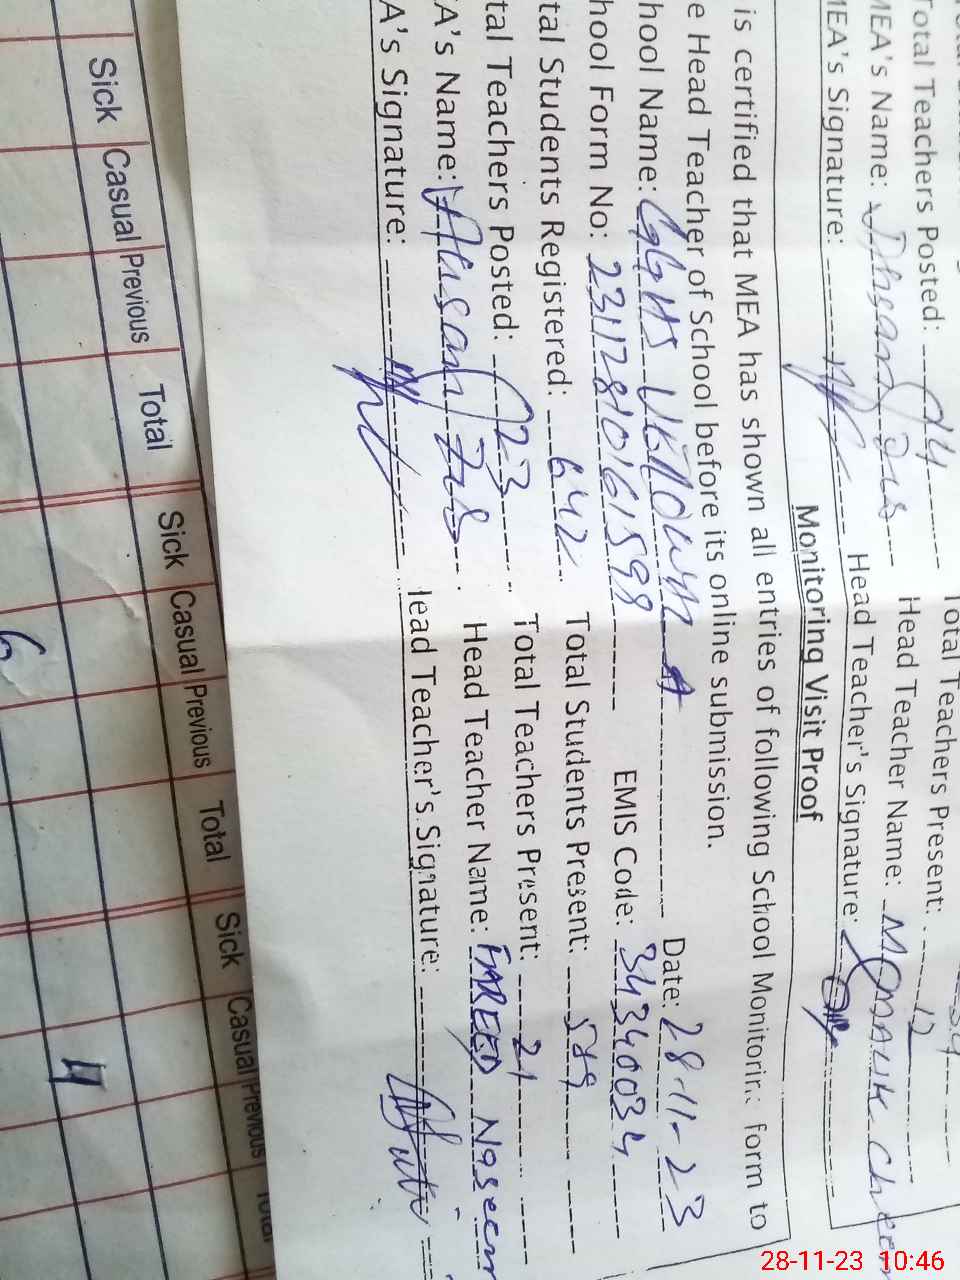 Total Teachers Posted: 14 Total Teachers Present: 12
MEA's Name: Head Teacher Name:
MEA's Signature: Head Teacher's Signature:
Monitoring Visit Proof
is certified that MEA has shown all entries of following School Monitoring Form to
e Head Teacher of School before its online submission.
hool Name: GGHS Date: 28-11-23
hool Form No: 23112810161598 EMIS Code: 34340034
tal Students Registered: 642 Total Students Present: 589
tal Teachers Posted: 23 Total Teachers Present: 21
A's Name: Head Teacher Name: FAREED Naseem
A's Signature: Head Teacher's Signature:
Sick Casual Previous Total Sick Casual Previous Total Sick Casual Previous Total
28-11-23 10:46